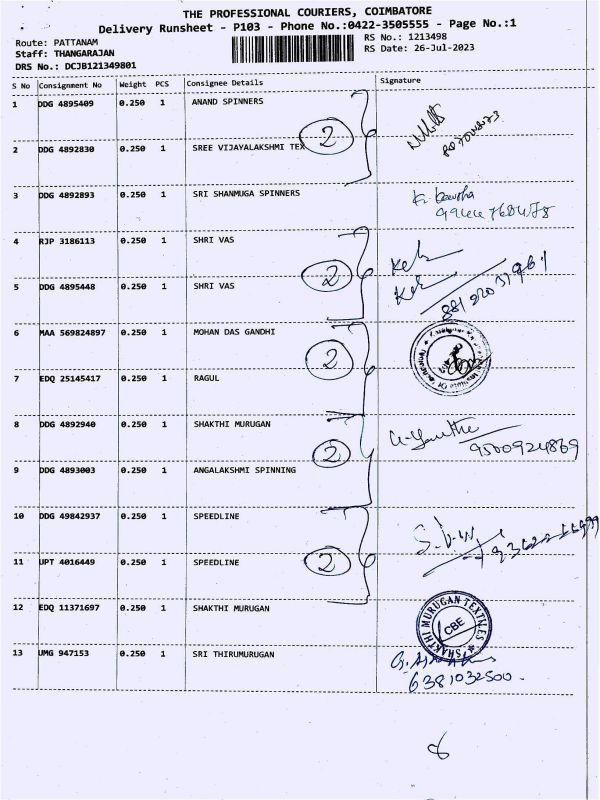 THE PROFESSIONAL COURIERS, COIMBATORE
Delivery Runsheet - P103 - Phone No.:0422-3505555 - Page No.:1
Route: PATTANAM
RS No.: 1213498
Staff: THANGARAJAN
RS Date: 26-Jul-2023
DRS No.: DCJB121349801
S No Consignment No Weight PCS Consignee Details Signature
1 DDG 4895409 0.250 1 ANAND SPINNERS
2
2 DDG 4892830 0.250 1 SREE VIJAYALAKSHMI TEX
3 DDG 4892893 0.250 1 SRI SHANMUGA SPINNERS
4 RJP 3186113 0.250 1 SHRI VAS
2
5 DDG 4895448 0.250 1 SHRI VAS
6 MAA 569824897 0.250 1 MOHAN DAS GANDHI
2
7 EDQ 25145417 0.250 1 RAGUL
8 DDG 4892940 0.250 1 SHAKTHI MURUGAN
2 9500924869
9 DDG 4893003 0.250 1 ANGALAKSHMI SPINNING
10 DDG 49842937 0.250 1 SPEEDLINE
2
11 UPT 4016449 0.250 1 SPEEDLINE
12 EDQ 11371697 0.250 1 SHAKTHI MURUGAN
SHAKTHI MURUGAN TEXTILES
CBE
13 UMG 947153 0.250 1 SRI THIRUMURUGAN
6381032500
8